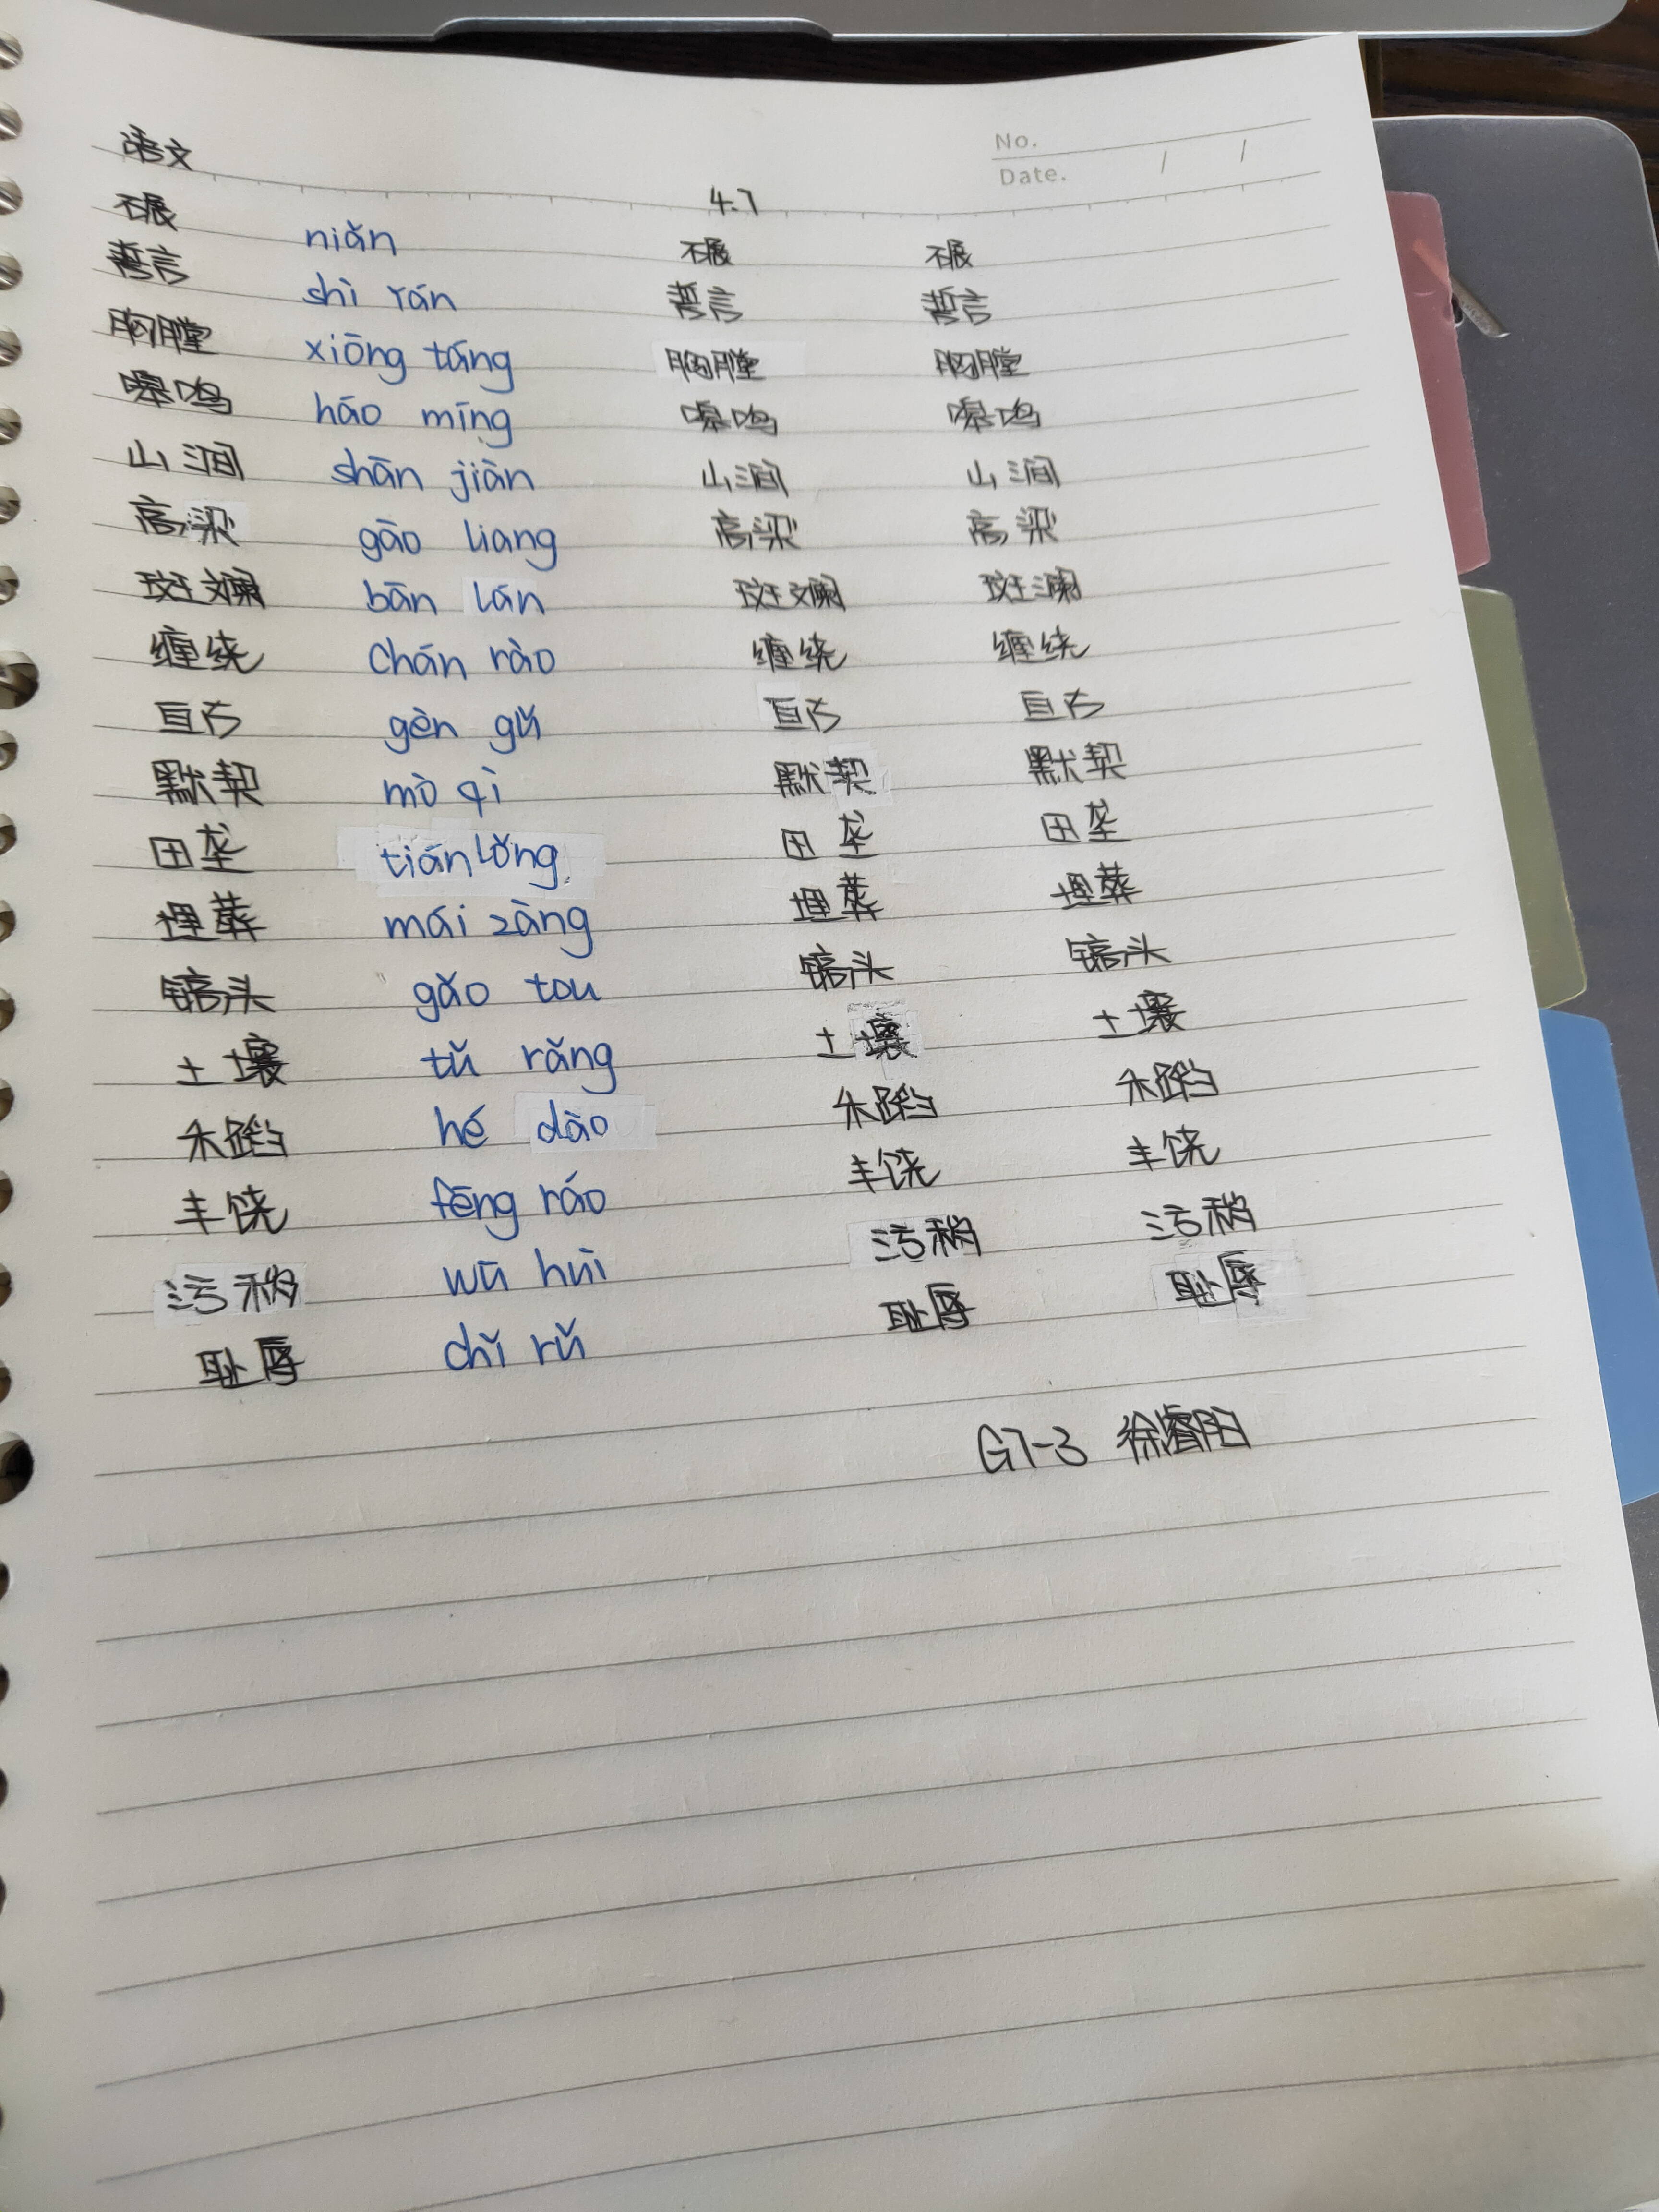 语文
No.
Date. / /
4.7
碾 niǎn 碾 碾
誓言 shì yán 誓言 誓言
胸膛 xiōng táng 胸膛 胸膛
嗥鸣 háo míng 嗥鸣 嗥鸣
山涧 shān jiàn 山涧 山涧
高粱 gāo liang 高粱 高粱
斑斓 bān lán 斑斓 斑澜
缠绕 chán rào 缠绕 缠绕
亘古 gèn gǔ 亘古 亘古
默契 mò qì 默契 默契
田垄 tián lǒng 田垄 田垄
埋葬 mái zàng 埋葬 埋葬
镐头 gǎo tou 镐头 镐头
土壤 tǔ rǎng 土壤 土壤
禾蹈 hé dào 禾蹈 禾蹈
丰饶 fēng ráo 丰饶 丰饶
污秽 wū huì 污秽 污秽
耻辱 chǐ rǔ 耻辱 耻辱
G7-3 徐睿阳